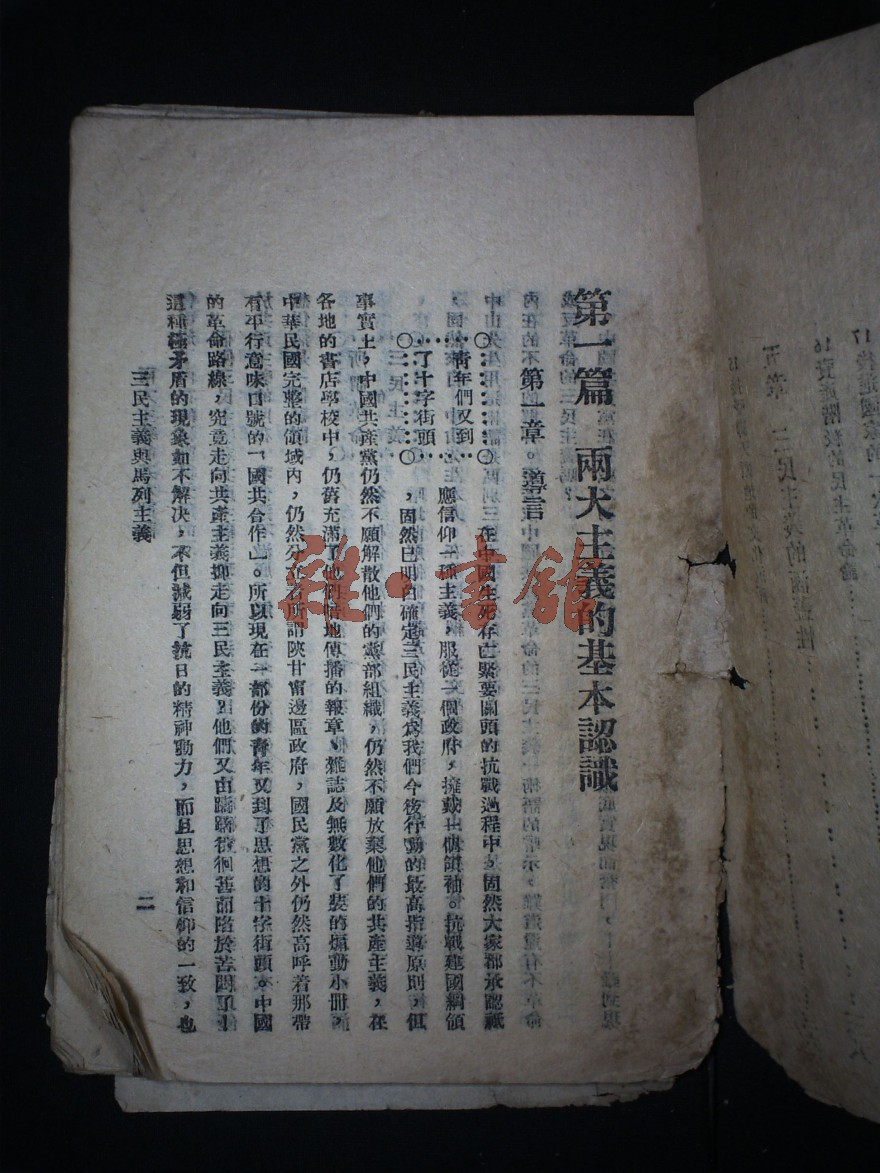 第一篇 兩大主義的基本認識
第一章。導言
青年們又到
了十字街頭
在中國生死存亡緊要關頭的抗戰過程中，固然大家都承認祇
應信仰一種主義，服從一個政府，擁戴一個領袖。抗戰建國綱領
，固然已明白確定三民主義為我們今後行動的最高指導原則，但
事實上，中國共產黨仍然不願解散他們的黨部組織，仍然不願放棄他們的共產主義，在
各地的書店學校中，仍舊充滿了他們暗地傳播的報章、雜誌及無數化了裝的煽動小冊，
中華民國完整的領域內，仍然分立着所謂陝甘甯邊區政府，國民黨之外仍然高呼着那帶
有平行意味口號的「國共合作」。所以現在一部份的青年又到了思想的十字街頭。中國
的革命路線，究竟走向共產主義抑走向三民主義？他們又由躊躇徬徊甚而陷於苦悶了！
這種極矛盾的現象如不解決，不但減弱了抗日的精神動力，而且思想和信仰的一致，也
三民主義與馬列主義
二
雜·書館
16 資產階級的民主革命論
五章 三民主義的